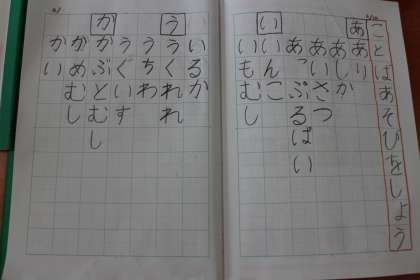 ことばあそびをしよう
あ
あり
あしか
あいさつ
あっぷるぱい
い
いんこ
いもむし
いるか
う
うくれれ
うちわ
うぐいす
か
かぶとむし
かめむし
かい